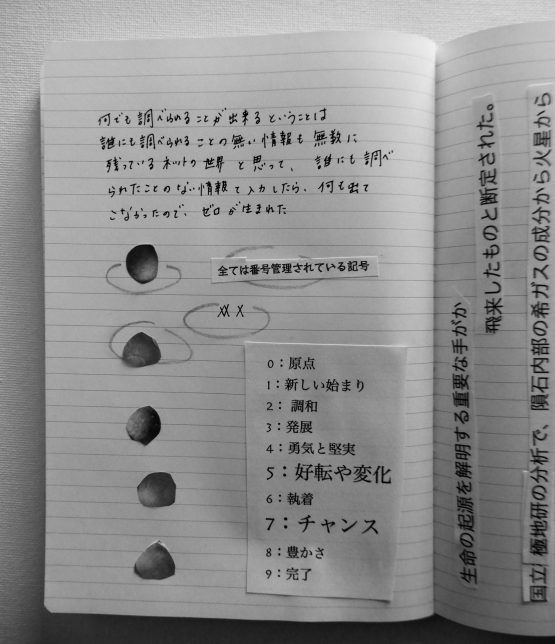 何でも調べられることが出来るということは
誰にも調べられることの無い情報も無数に
残っているネットの世界と思って、誰にも調べ
られたことのない情報を入力したら、何も出て
こなかったので、ゼロが生まれた
全ては番号管理されている記号
0：原点
1：新しい始まり
2：調和
3：発展
4：勇気と堅実
5：好転や変化
6：執着
7：チャンス
8：豊かさ
9：完了
国立極地研の分析で、隕石内部の希ガスの成分から火星から
飛来したものと断定された。
生命の起源を解明する重要な手がか